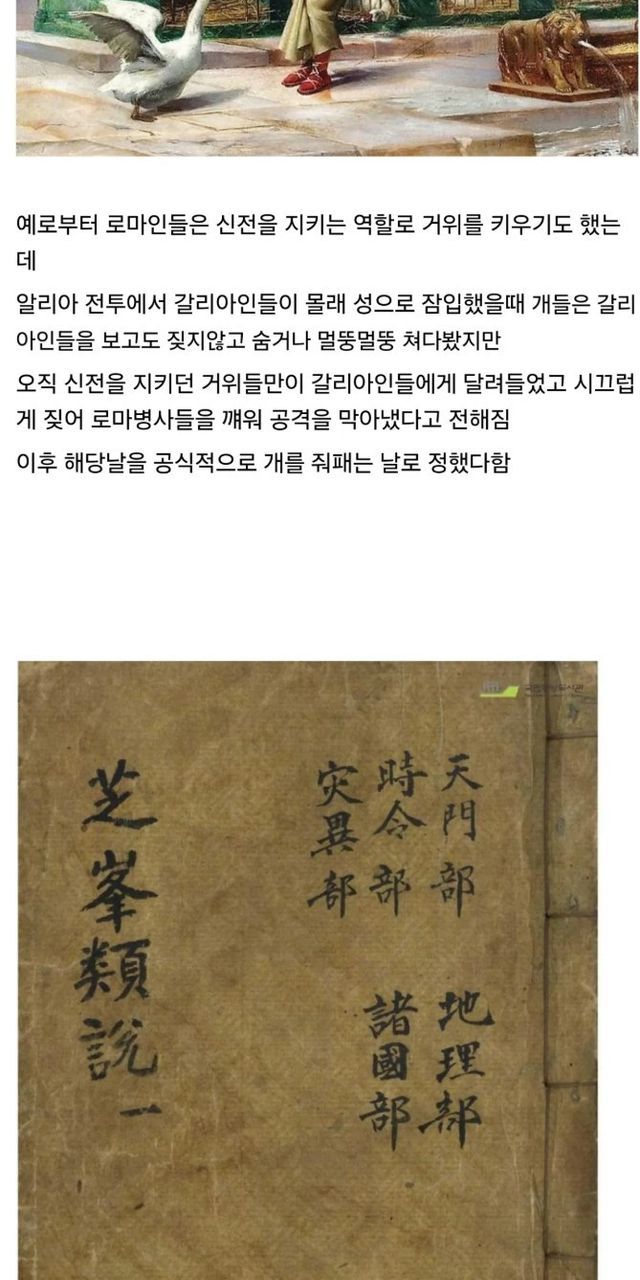 예로부터 로마인들은 신전을 지키는 역할로 거위를 키우기도 했는
데
알리아 전투에서 갈리아인들이 몰래 성으로 잠입했을때 개들은 갈리
아인들을 보고도 짖지않고 숨거나 멀뚱멀뚱 쳐다봤지만
오직 신전을 지키던 거위들만이 갈리아인들에게 달려들었고 시끄럽
게 짖어 로마병사들을 꺠워 공격을 막아냈다고 전해짐
이후 해당날을 공식적으로 개를 줘패는 날로 정했다함
天門部
時令部
灾異部
地理部
諸國部
芝峯類說 一